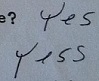 e? Yes
Yess